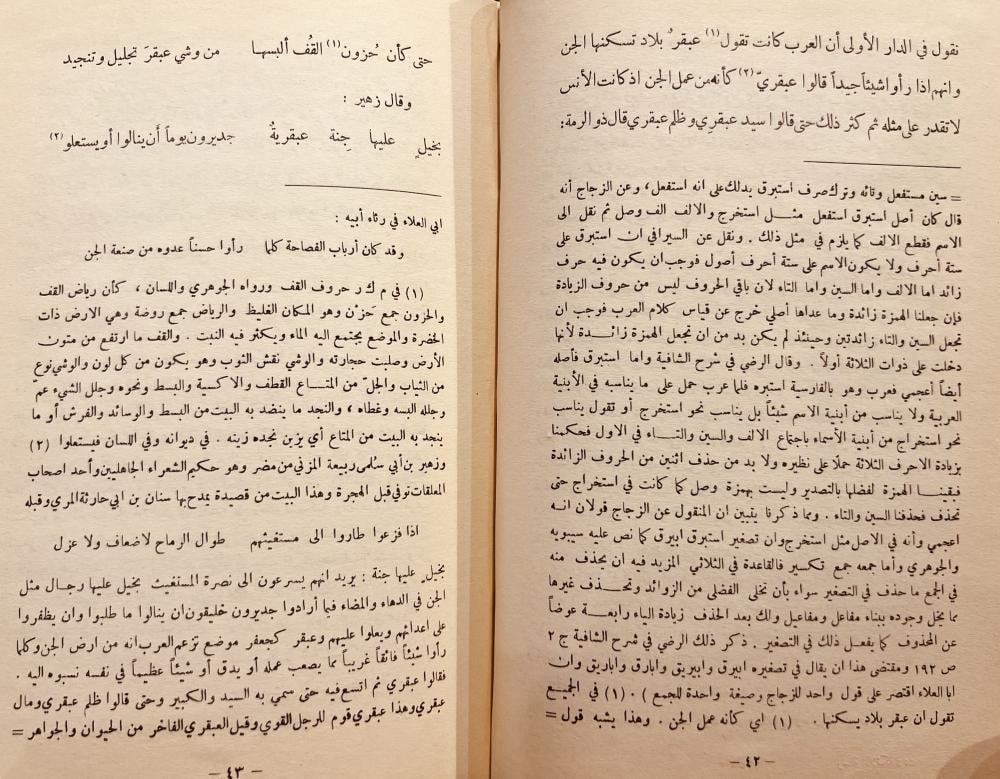 نقول في الدار الأولى أن العرب كانت تقول (١) عبقر بلاد تسكنها الجن
وانهم اذا رأوا شيئاً جيداً قالوا عبقريّ (٢) كأنه من عمل الجن اذ كانت الأنس
لا تقدر على مثله ثم كثر ذلك حتى قالوا سيد عبقري وظلم عبقري قال ذو الرمة:
= سين مستفعل وتائه وترك صرف استبرق يدلك على انه استفعل، وعن الزجاج أنه
قال كان أصل استبرق استفعل مثل استخرج والالف الف وصل ثم نقل الى
الاسم فقطع الالف كما يلزم في مثل ذلك . ونقل عن السيرافي ان استبرق على
ستة أحرف ولا يكون الاسم على ستة أحرف أصول فوجب ان يكون فيه حرف
زائد اما الالف واما السين واما التاء لان باقي الحروف ليس من حروف الزيادة
فإن جعلنا الهمزة زائدة وما عداها أصلي خرج عن قياس كلام العرب فوجب ان
تجعل السين والتاء زائدتين وحينئذ لم يكن بد من ان تجعل الهمزة زائدة لأنها
دخلت على ذوات الثلاثة أولاً . وقال الرضي في شرح الشافية واما استبرق فأصله
أيضاً أعجمي فعرب وهو بالفارسية استبره فلما عرب حمل على ما يناسبه في الأبنية
العربية ولا يناسب من أبنية الاسم شيئاً بل يناسب نحو استخرج أو تقول يناسب
نحو استخراج من أبنية الأسماء باجتماع الالف والسين والتاء في الاول فحكمنا
بزيادة الاحرف الثلاثة حملا على نظيره ولا بد من حذف اثنين من الحروف الزائدة
فبقينا الهمزة لفضلها بالتصدير وليست بهمزة وصل كما كانت في استخراج حتى
تحذف فحذفنا السين والتاء . ومما ذكرنا يتبين ان المنقول عن الزجاج قولان انه
اعجمي وأنه في الاصل مثل استخرج وان تصغير استبرق ابيرق كما نص عليه سيبويه
والجوهري وأما جمعه جمع تكسير فالقاعدة في الثلاثي المزيد فيه ان يحذف منه
في الجمع ما حذف في التصغير سواء بأن تخلى الفضلى من الزوائد وتحذف غيرها
مما يخل وجوده ببناء مفاعل ومفاعيل ولك بعد الحذف زيادة الياء رابعة عوضاً
عن المحذوف كما يفعل ذلك في التصغير . ذكر ذلك الرضي في شرح الشافية ج ٢
ص ١٩٢ ومقتضى هذا ان يقال في تصغيره ابيرق وابيريق وابارق واباريق وان
ابا العلاء اقتصر على قول واحد للزجاج وصيغة واحدة للجمع) . (١) في الجميع
تقول ان عبقر بلاد يسكنها . (١) اي كأنه عمل الجن . وهذا يشبه قول =
— ٤٢ —
حتى كأن حُزون (١) القُف ألبسها من وشي عبقرَ تجليل وتنجيد
وقال زهير :
بخيلٍ عليها جِنة عبقريةٌ جديرون يوماً أن ينالوا أو يستعلو (٢)
ابي العلاء في رثاء أبيه :
وقد كان أرباب الفصاحة كلما رأوا حسناً عدوه من صنعة الجن
(١) في م ك ر حروف القف ورواه الجوهري واللسان ، كأن رياض القف
والحزون جمع حَزْن وهو المكان الغليظ والرياض جمع روضة وهي الارض ذات
الخضرة والموضع يجتمع اليه الماء ويكثر فيه النبت . والقف ما ارتفع من متون
الأرض وصلبت حجارته والوشي نقش الثوب وهو يكون من كل لون والوشي نوع
من الثياب والجلّ من المتاع القطف والاكسية والبسط ونحوه وجلل الشيء عمّ
وجلله البسه وغطاه ، والنجد ما ينضد به البيت من البسط والوسائد والفرش أو ما
ينجد به البيت من المتاع أي يزين نجده زينه . في ديوانه وفي اللسان فيستعلوا (٢)
وزهير بن أبي سُلمى ربيعة المزني من مضر وهو حكيم الشعراء الجاهليين وأحد اصحاب
المعلقات توفي قبل الهجرة وهذا البيت من قصيدة يمدح بها سنان بن ابي حارثة المري وقبله
اذا فزعوا طاروا الى مستغيثهم طوال الرماح لا ضعاف ولا عزل
بخيل عليها جنة : يريد انهم يسرعون الى نصرة المستغيث بخيل عليها رجال مثل
الجن في الدهاء والمضاء فيما أرادوا جديرون خليقون ان ينالوا ما طلبوا وان يظفروا
على اعدائهم ويعلوا عليهم وعبقر كجعفر موضع تزعم العرب انه من ارض الجن وكلما
رأوا شيئاً فائقاً غريباً مما يصعب عمله أو يدق أو شيئاً عظيماً في نفسه نسبوه اليه .
فقالوا عبقري ثم اتسع فيه حتى سمي به السيد والكبير وحتى قالوا ظلم عبقري ومال
عبقري وهذا عبقري قوم للرجل القوي وقيل العبقري الفاخر من الحيوان والجواهر =
— ٤٣ —